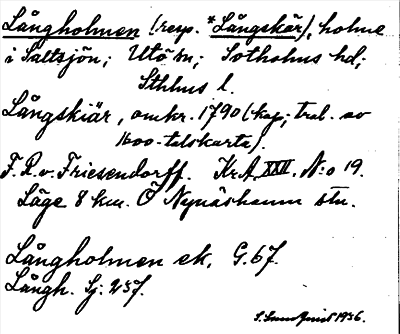 Långholmen (resp. *Långskär), holme
i Saltsjön; Utö sn; Sotholms hd;
Sthlms l.
Långskiär, omkr. 1790 (kop; trol. av
1600-talskarta).
F. R. v. Friesendorff. Kr.A. XXII. N:o 19.
Läge 8 km. Ö Nynäshamn stn.
Långholmen ek. G.67.
Långh. Sj: 237.
S. Sundqvist 1936.